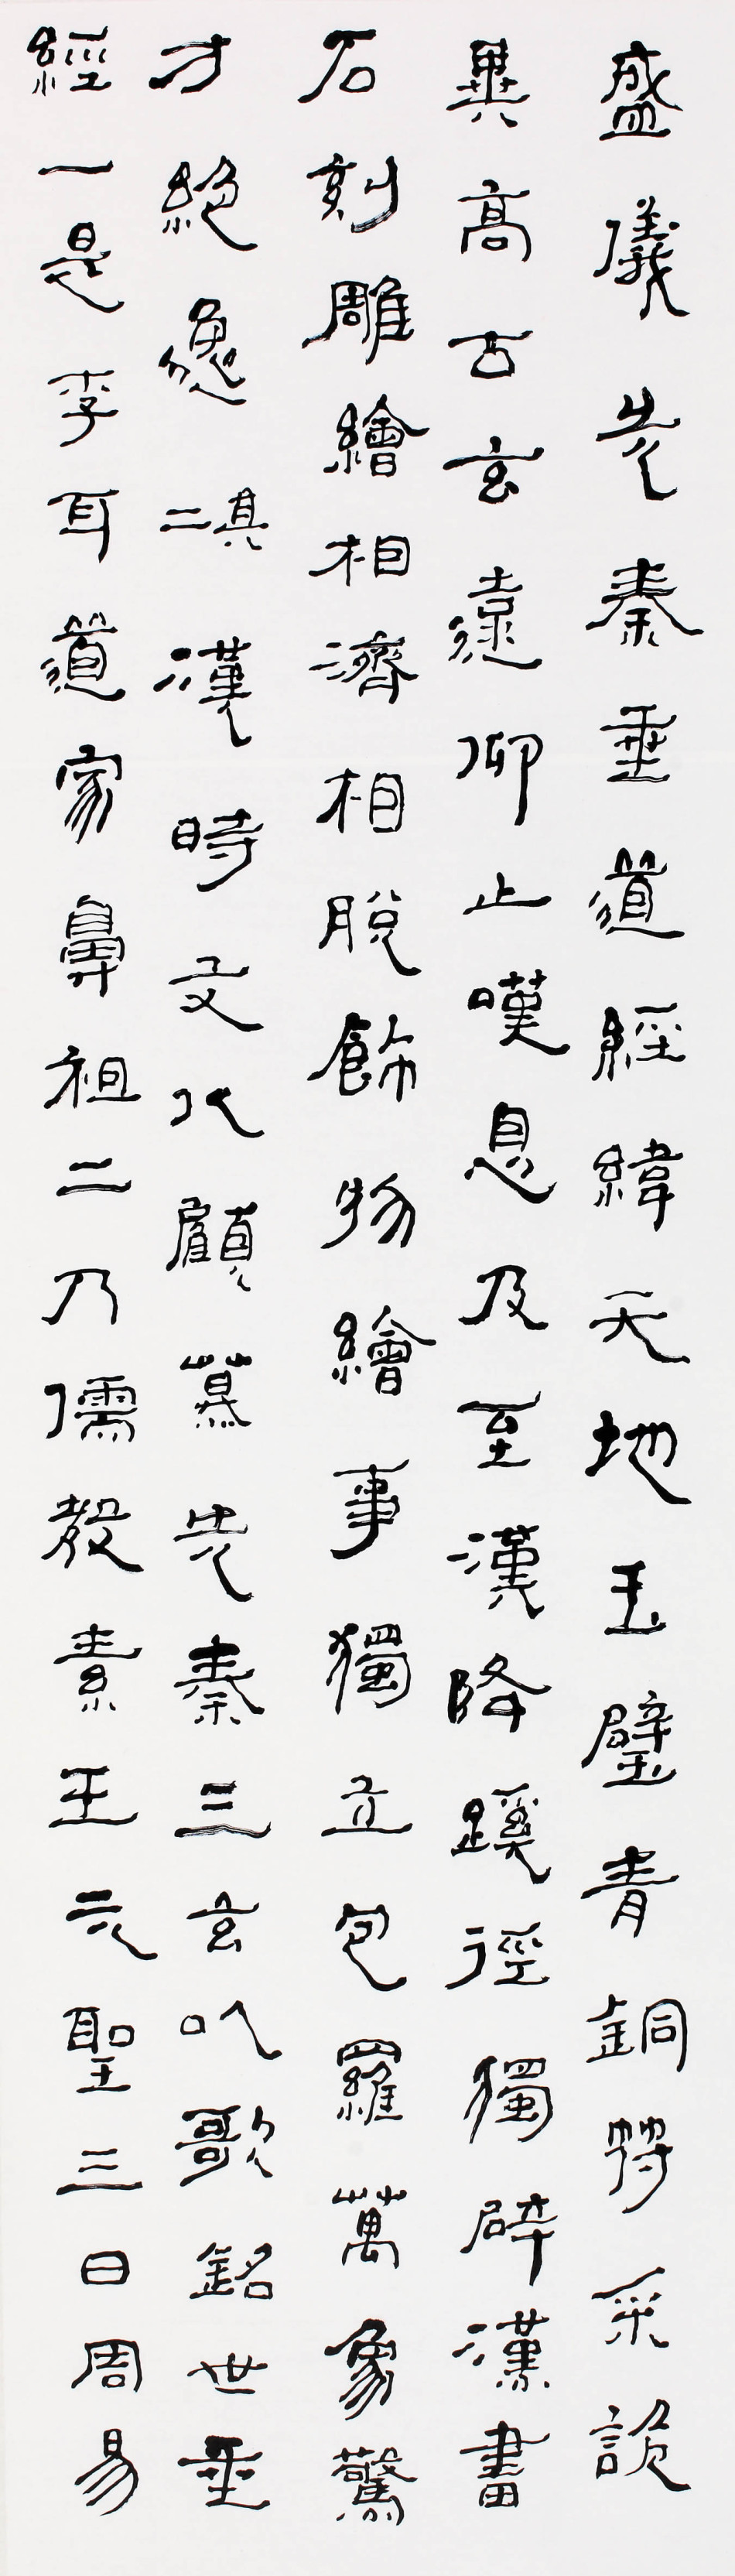 盛儀先秦垂道經緯天地玉璧青銅采詭
異高古玄遠仰止嘆息及至漢降蹊徑獨辟漢畫
石刻雕繪相濟相脫飾物繪事獨立包羅萬象驚
才絕逸其二漢時文化顧慕先秦三玄㕥歌銘世垂
經一是李耳道家鼻祖二乃儒教素王元聖三曰周易